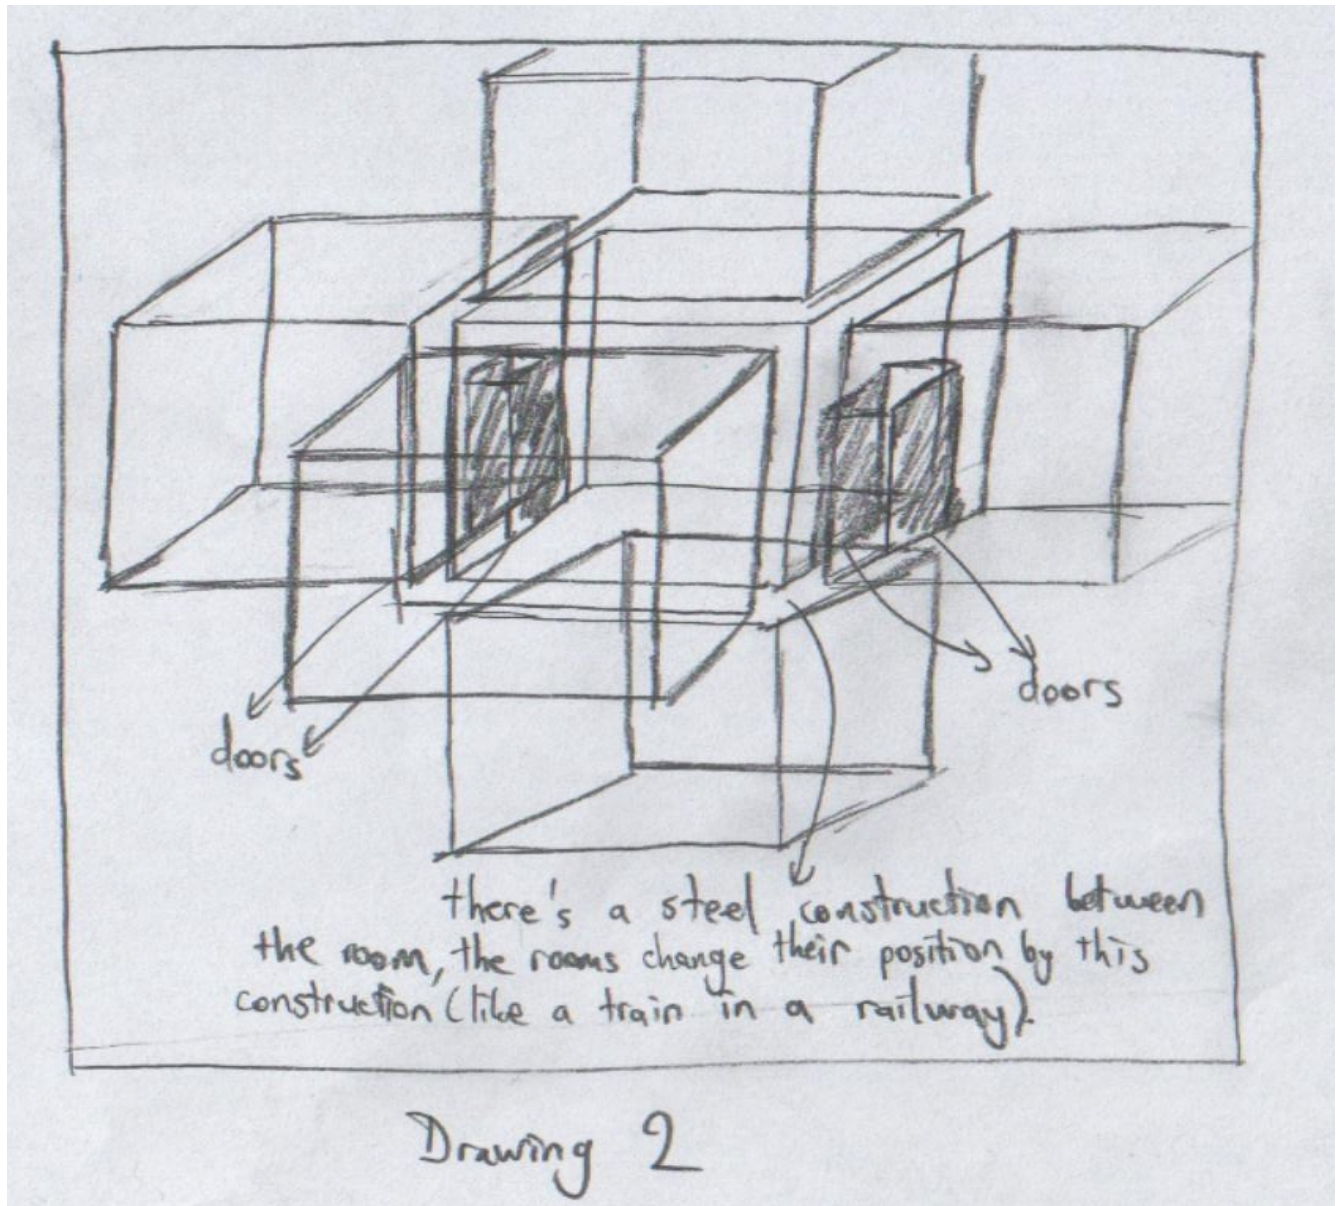 doors
doors
there's a steel construction between
the room, the rooms change their position by this
construction (like a train in a railway).
Drawing 2